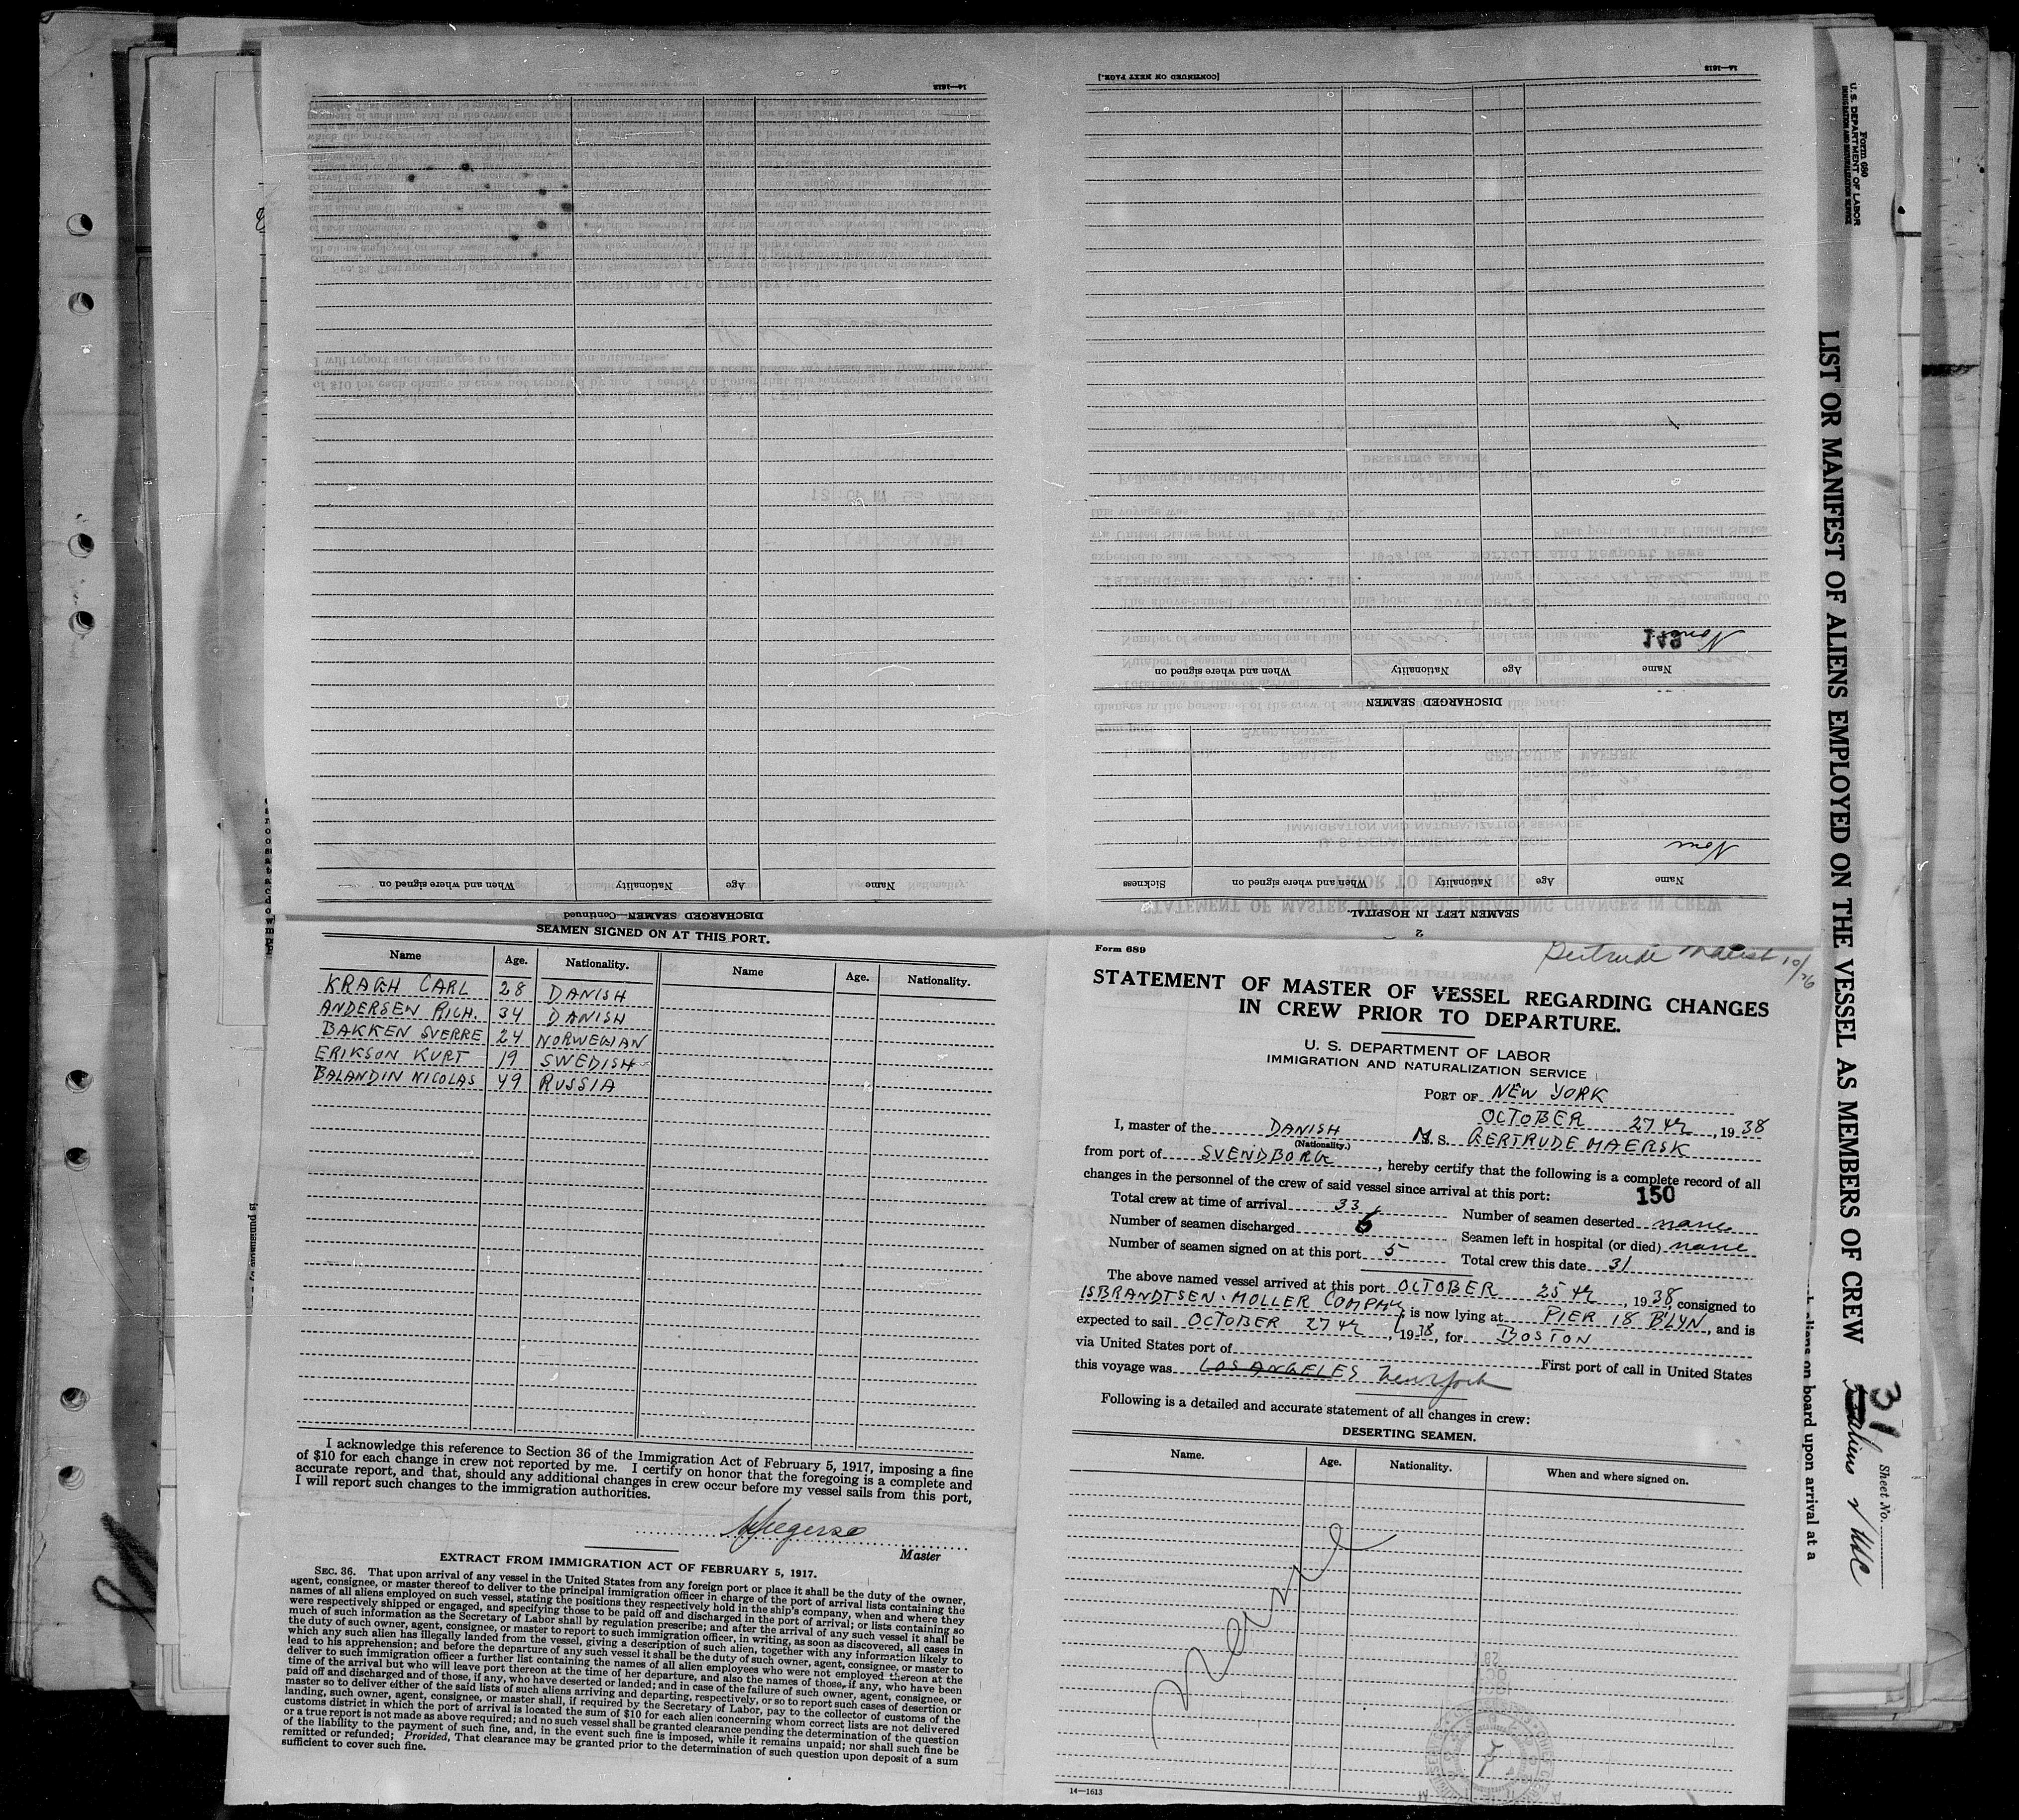 [CONTINUED ON NEXT PAGE.]
14—1613
14—1613
Form 680
U. S. DEPARTMENT OF LABOR
IMMIGRATION AND NATURALIZATION SERVICE
LIST OR MANIFEST OF ALIENS EMPLOYED ON THE VESSEL AS MEMBERS OF CREW
Sheet No.
31
aliens on board upon arrival at a
149
None
Name Age Nationality When and where signed on
DISCHARGED SEAMEN
None
Name Age Nationality When and where signed on Sickness
SEAMEN LEFT IN HOSPITAL.
2
Name Age Nationality When and where signed on
DISCHARGED SEAMEN—Continued
SEAMEN SIGNED ON AT THIS PORT.
Name Age. Nationality. Name Age. Nationality.
KRAGH CARL 28 DANISH
ANDERSEN RICH. 34 DANISH
BAKKEN SVERRE 24 NORWEGIAN
ERIKSON KURT 19 SWEDISH
BALANDIN NICOLAS 49 RUSSIA
I acknowledge this reference to Section 36 of the Immigration Act of February 5, 1917, imposing a fine
of $10 for each change in crew not reported by me. I certify on honor that the foregoing is a complete and
accurate report, and that, should any additional changes in crew occur before my vessel sails from this port,
I will report such changes to the immigration authorities.
Master
EXTRACT FROM IMMIGRATION ACT OF FEBRUARY 5, 1917.
SEC. 36. That upon arrival of any vessel in the United States from any foreign port or place it shall be the duty of the owner,
agent, consignee, or master thereof to deliver to the principal immigration officer in charge of the port of arrival lists containing the
names of all aliens employed on such vessel, stating the positions they respectively hold in the ship's company, when and where they
were respectively shipped or engaged, and specifying those to be paid off and discharged in the port of arrival; or lists containing so
much of such information as the Secretary of Labor shall by regulation prescribe; and after the arrival of any such vessel it shall be
the duty of such owner, agent, consignee, or master to report to such immigration officer, in writing, as soon as discovered, all cases in
which any such alien has illegally landed from the vessel, giving a description of such alien, together with any information likely to
lead to his apprehension; and before the departure of any such vessel it shall be the duty of such owner, agent, consignee, or master to
deliver to such immigration officer a further list containing the names of all alien employees who were not employed thereon at the
time of the arrival but who will leave port thereon at the time of her departure, and also the names of those, if any, who have been
paid off and discharged and of those, if any, who have deserted or landed; and in case of the failure of such owner, agent, consignee, or
master so to deliver either of the said lists of such aliens arriving and departing, respectively, or so to report such cases of desertion or
landing, such owner, agent, consignee, or master shall, if required by the Secretary of Labor, pay to the collector of customs of the
customs district in which the port of arrival is located the sum of $10 for each alien concerning whom correct lists are not delivered
or a true report is not made as above required; and no such vessel shall be granted clearance pending the determination of the question
of the liability to the payment of such fine, and, in the event such fine is imposed, while it remains unpaid; nor shall such fine be
remitted or refunded; Provided, That clearance may be granted prior to the determination of such question upon deposit of a sum
sufficient to cover such fine.
Form 689
Gertrude Maersk 10/26
STATEMENT OF MASTER OF VESSEL REGARDING CHANGES
IN CREW PRIOR TO DEPARTURE.
U. S. DEPARTMENT OF LABOR
IMMIGRATION AND NATURALIZATION SERVICE
PORT OF NEW YORK
OCTOBER 27th, 1938
I, master of the DANISH M. S. GERTRUDE MAERSK
(Nationality.)
from port of SVENDBORG, hereby certify that the following is a complete record of all
changes in the personnel of the crew of said vessel since arrival at this port:
150
Total crew at time of arrival 33 Number of seamen deserted none
Number of seamen discharged 6 Seamen left in hospital (or died) none
Number of seamen signed on at this port 5 Total crew this date 31
The above named vessel arrived at this port OCTOBER 25th, 1938, consigned to
ISBRANDTSEN-MOLLER COMPANY, is now lying at PIER 18 BLYN, and is
expected to sail OCTOBER 27th, 1938, for BOSTON
via United States port of First port of call in United States
this voyage was LOS ANGELES New York
Following is a detailed and accurate statement of all changes in crew:
DESERTING SEAMEN.
Name. Age. Nationality. When and where signed on.
None
14—1613